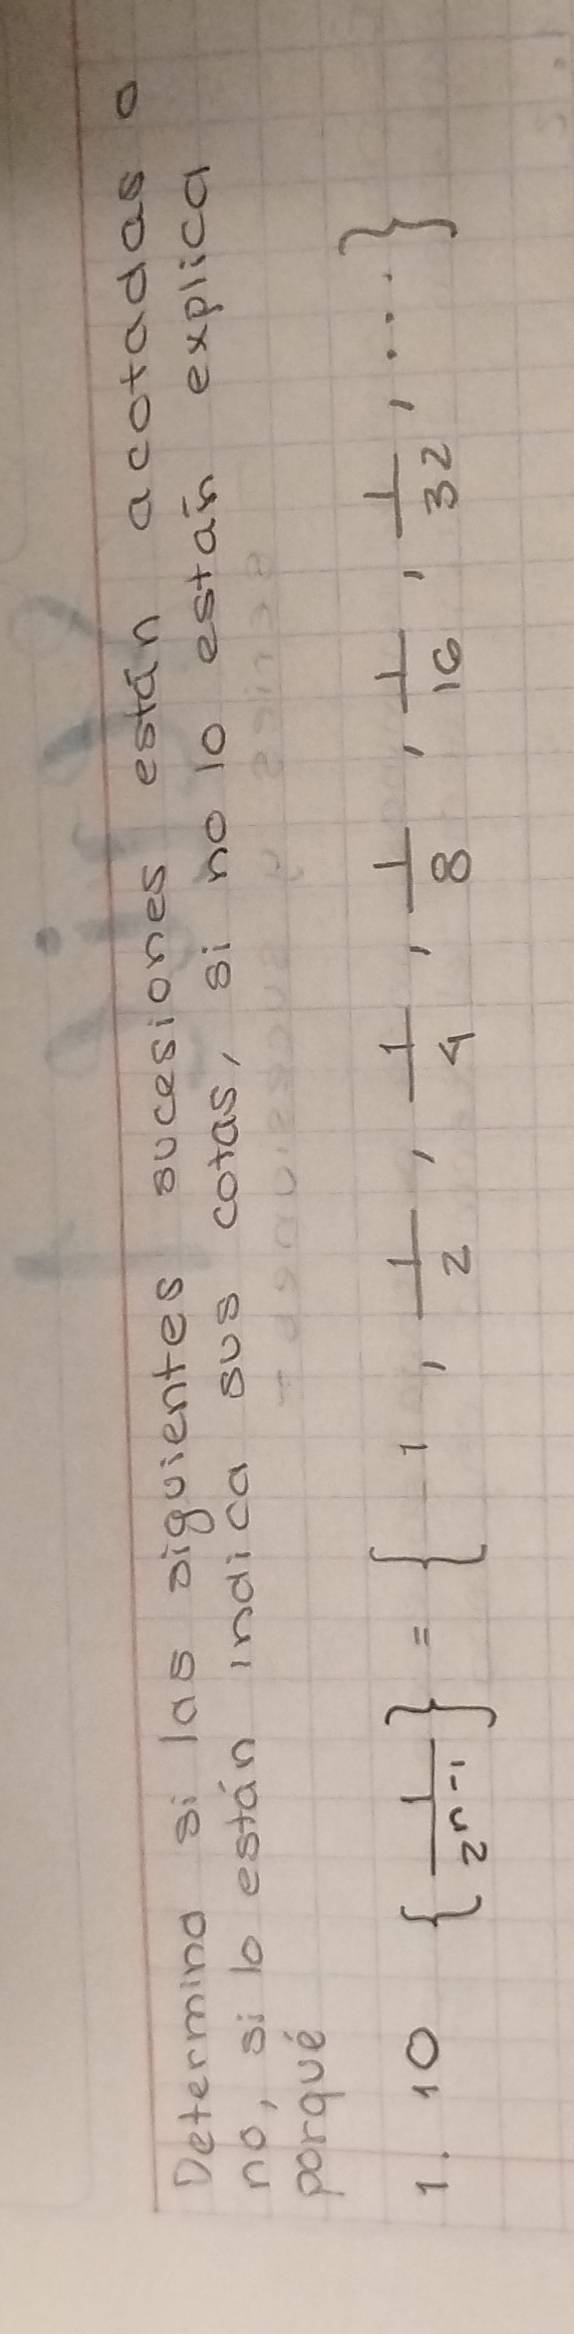 Determina si las siguientes sucesiones están acotadas o
no, si lo están indica sus cotas, si no lo están explica
porqué
1. 10 { 1/2^n-1 } = { 1, 1/2, 1/4, 1/8, 1/16, 1/32, ... }